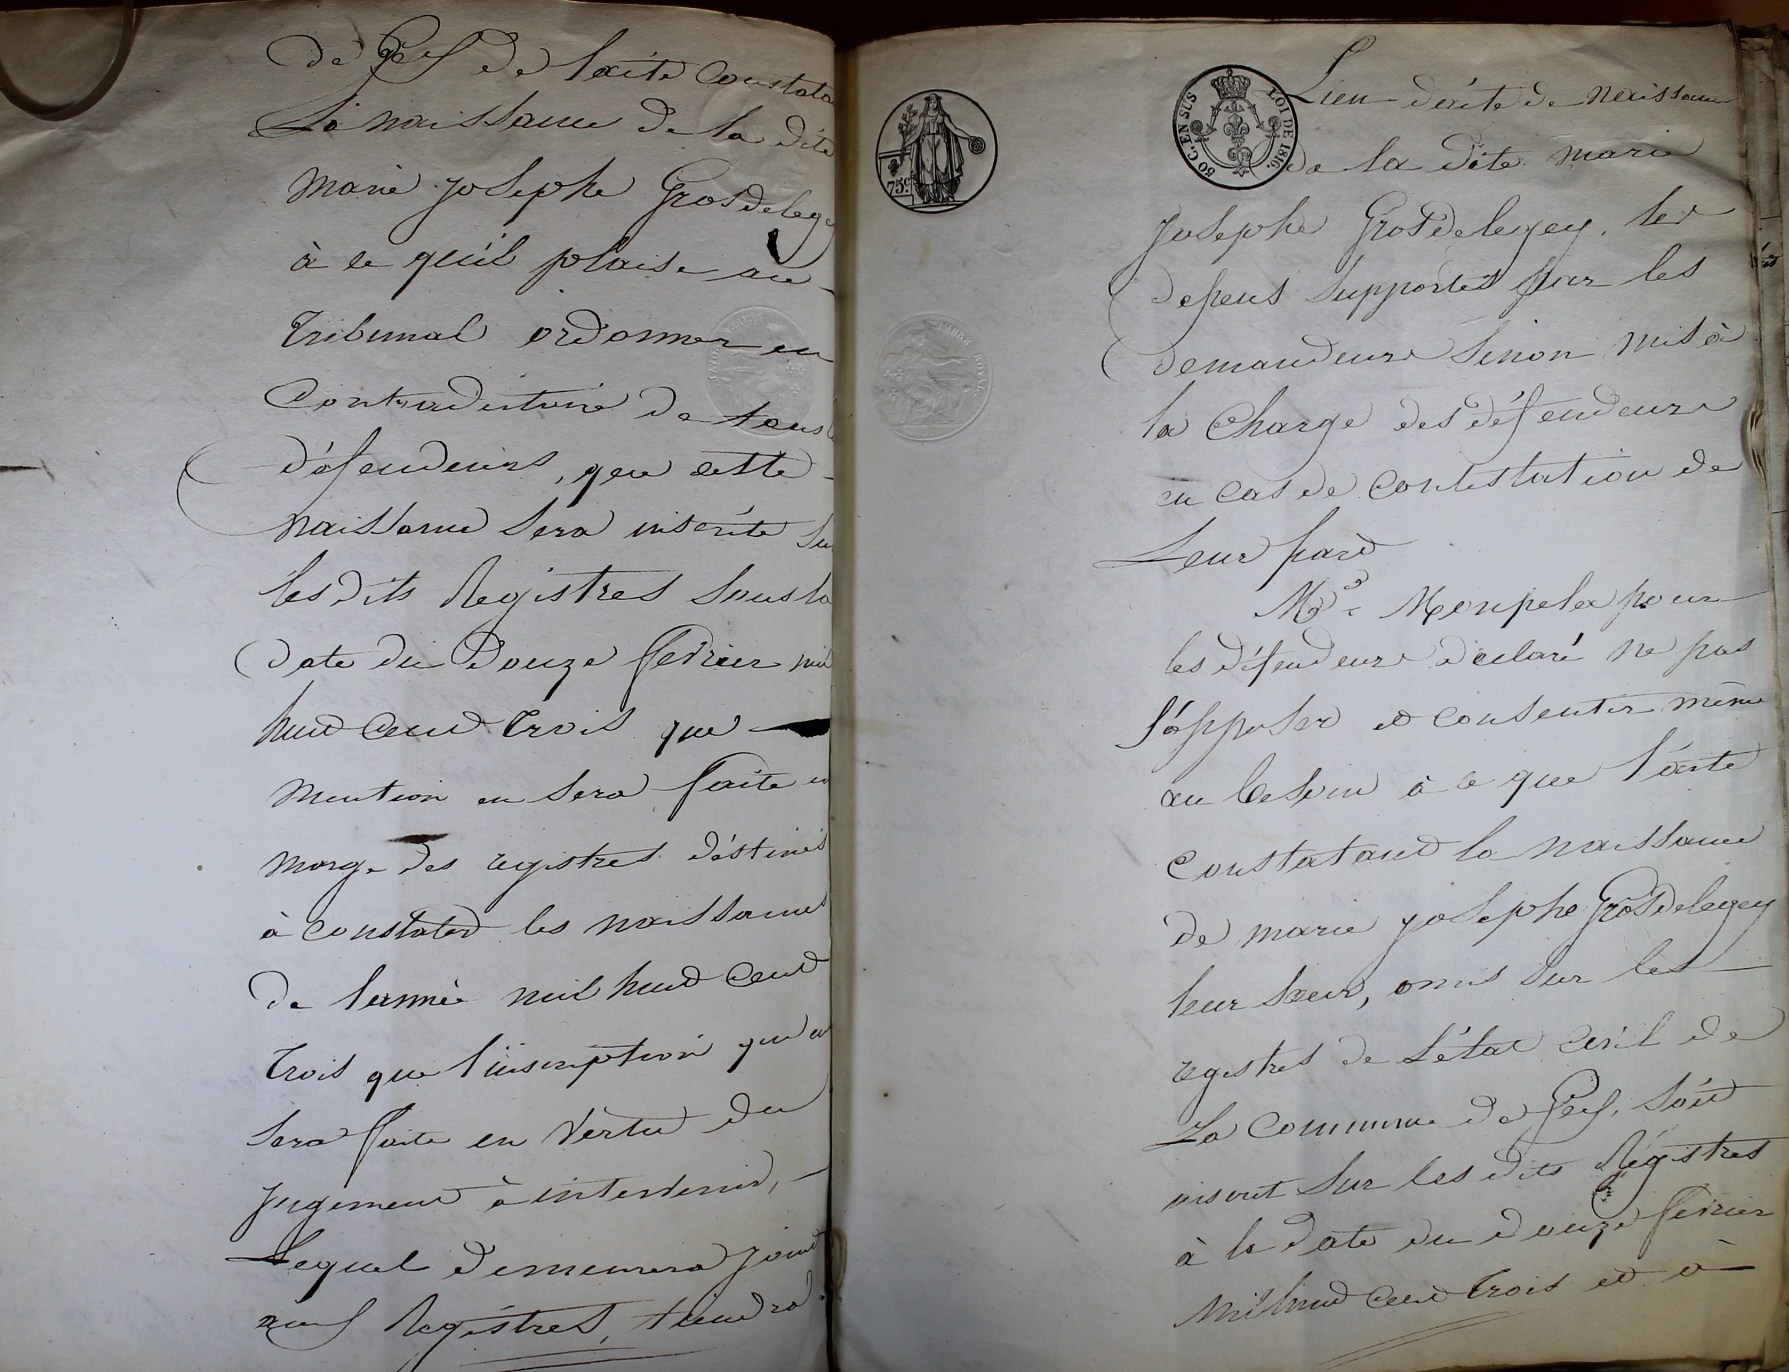 de Gex de l'acte constata
La naissance de la dite
marie josephe Grosdelege
à ce qu'il plaise au
Tribunal ordonner en
Contradictoire de tous
défendeurs, que cette
naissance sera inscrite su
les dits Registres sous la
date du douze fevrier mil
huit cent trois que
mention en sera faite en
marge des registres déstinés
à constater les naissances
de l'année mil huit cent
trois que l'inscription qui a
sera faite en vertu du
jugement à intervenir,
Lequel demeurera joint
aux Registres, tiendra
75 c
50 C. EN SUS
LOI DE 1816.
TIMBRE ROYAL
Lieu d'acte de naissance
de la dite marie
josephe Grosdelegey, les
depens supportés par les
demandeurs sinon mis à
la charge des défendeurs
en cas de contestation de
Leur part
Me Monpela pour
les défendeurs declaré ne pas
s'opposer et consentir même
au besoin à ce que l'acte
constatant la naissance
de marie josephe Grosdelegey
leur sœur, omis sur les
registres de l'état civil de
La commune de Gex, soit
inscrit sur les dits Régistres
à la date du douze fevrier
mil huit cent trois et à